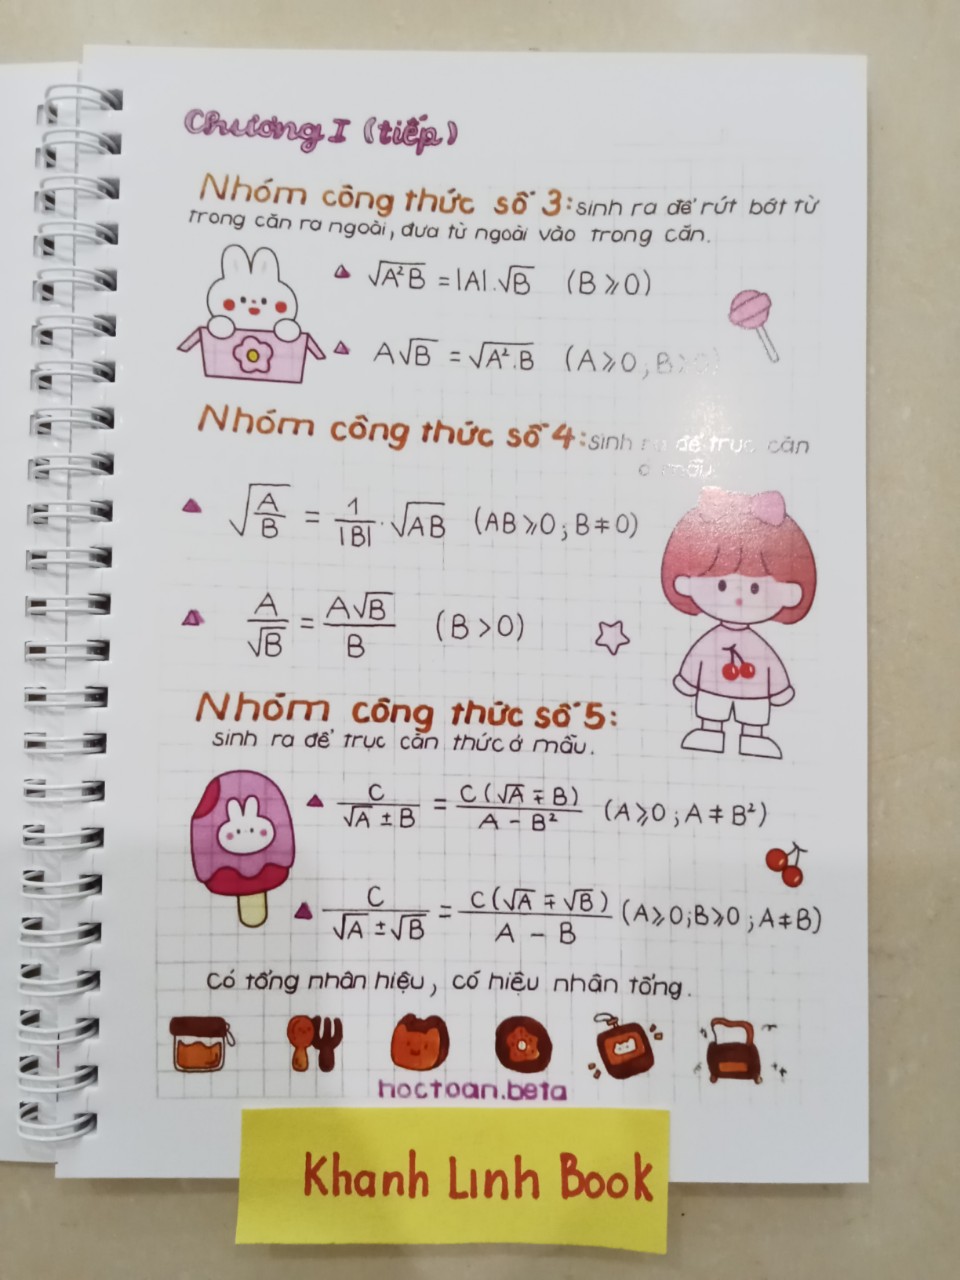 Chương I (tiếp)
Nhóm công thức số 3: sinh ra để rút bớt từ
trong căn ra ngoài, đưa từ ngoài vào trong căn.
√(A²B) = |A|.√B (B ⩾ 0)
A√B = √(A².B) (A ⩾ 0; B ⩾ 0)
Nhóm công thức số 4: sinh ra để trục căn
ở mẫu
√(A/B) = 1/|B| . √(AB) (AB ⩾ 0; B ≠ 0)
A/√B = A√B/B (B > 0)
Nhóm công thức số 5:
sinh ra để trục căn thức ở mẫu.
C/(√A ± B) = C(√A ∓ B)/(A − B²) (A ⩾ 0; A ≠ B²)
C/(√A ± √B) = C(√A ∓ √B)/(A − B) (A ⩾ 0; B ⩾ 0; A ≠ B)
Có tổng nhân hiệu, có hiệu nhân tổng.
hoctoan.beta
Khanh Linh Book